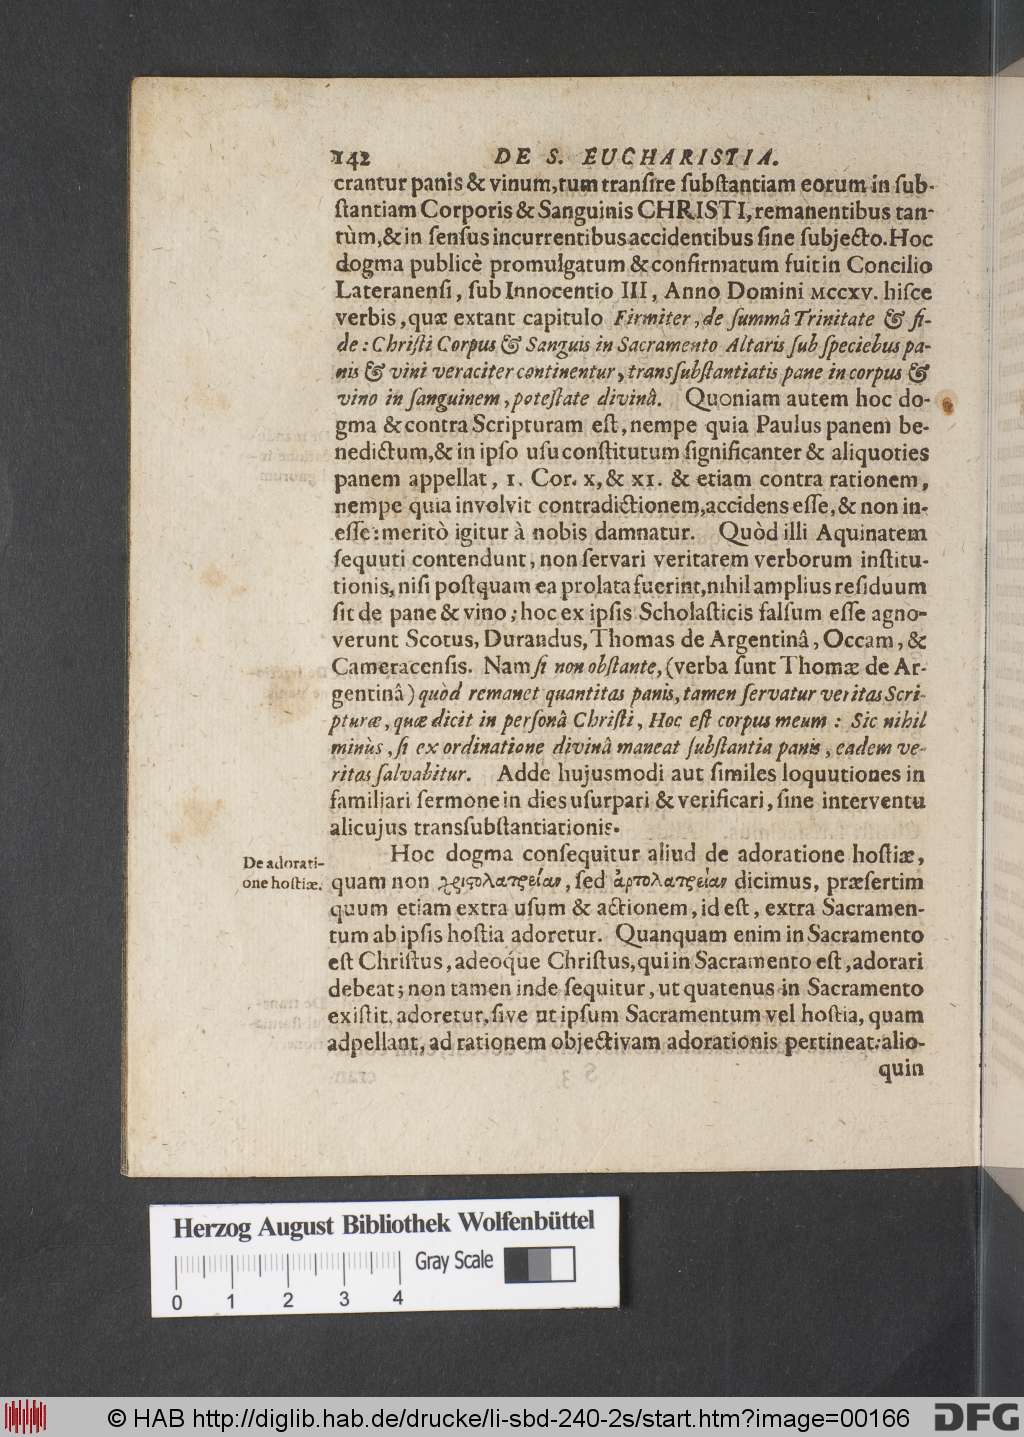 142 DE S. EUCHARISTIA.
crantur panis & vinum, tum transire substantiam eorum in sub-
stantiam Corporis & Sanguinis CHRISTI, remanentibus tan-
tùm, & in sensus incurrentibus accidentibus sine subjecto. Hoc
dogma publicè promulgatum & confirmatum fuit in Concilio
Lateranensi, sub Innocentio III, Anno Domini MCCXV. hisce
verbis, quæ extant capitulo Firmiter, de summâ Trinitate & fi-
de: Christi Corpus & Sanguis in Sacramento Altaris sub speciebus pa-
nis & vini veraciter continentur, transsubstantiatis pane in corpus &
vino in sanguinem, potestate divinâ. Quoniam autem hoc do-
gma & contra Scripturam est, nempe quia Paulus panem be-
nedictum, & in ipso usu constitutum significanter & aliquoties
panem appellat, 1. Cor. X, & XI. & etiam contra rationem,
nempe quia involvit contradictionem, accidens esse, & non in-
esse: meritò igitur à nobis damnatur. Quòd illi Aquinatem
sequuti contendunt, non servari veritatem verborum institu-
tionis, nisi postquam ea prolata fuerint, nihil amplius residuum
sit de pane & vino; hoc ex ipsis Scholasticis falsum esse agno-
verunt Scotus, Durandus, Thomas de Argentinâ, Occam, &
Cameracensis. Nam si non obstante, (verba sunt Thomæ de Ar-
gentinâ) quòd remanet quantitas panis, tamen servatur veritas Scri-
pturæ, quæ dicit in personâ Christi, Hoc est corpus meum: Sic nihil
minùs, si ex ordinatione divinâ maneat substantia panis, eadem ve-
ritas salvabitur. Adde hujusmodi aut similes loquutiones in
familiari sermone in dies usurpari & verificari, sine interventu
alicujus transsubstantiationis.
De adorati-
one hostiæ.
Hoc dogma consequitur aliud de adoratione hostiæ,
quam non χριστολατρείαν, sed ἀρτολατρείαν dicimus, præsertim
quum etiam extra usum & actionem, id est, extra Sacramen-
tum ab ipsis hostia adoretur. Quanquam enim in Sacramento
est Christus, adeoque Christus, qui in Sacramento est, adorari
debeat; non tamen inde sequitur, ut quatenus in Sacramento
existit, adoretur, sive ut ipsum Sacramentum vel hostia, quam
adpellant, ad rationem objectivam adorationis pertineat: alio-
quin
Herzog August Bibliothek Wolfenbüttel
Gray Scale
0 1 2 3 4
© HAB http://diglib.hab.de/drucke/li-sbd-240-2s/start.htm?image=00166 DFG